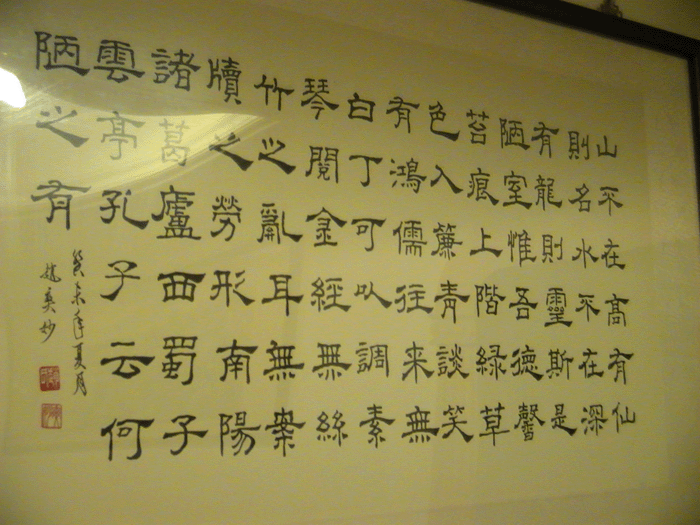 山不在高有仙
則名水不在深
有龍則靈斯是
陋室惟吾德馨
苔痕上階綠草
色入簾青談笑
有鴻儒往來無
白丁可以調素
琴閱金經無絲
竹之亂耳無案
牘之勞形南陽
諸葛廬西蜀子
雲亭孔子云何
陋之有
癸未年夏月